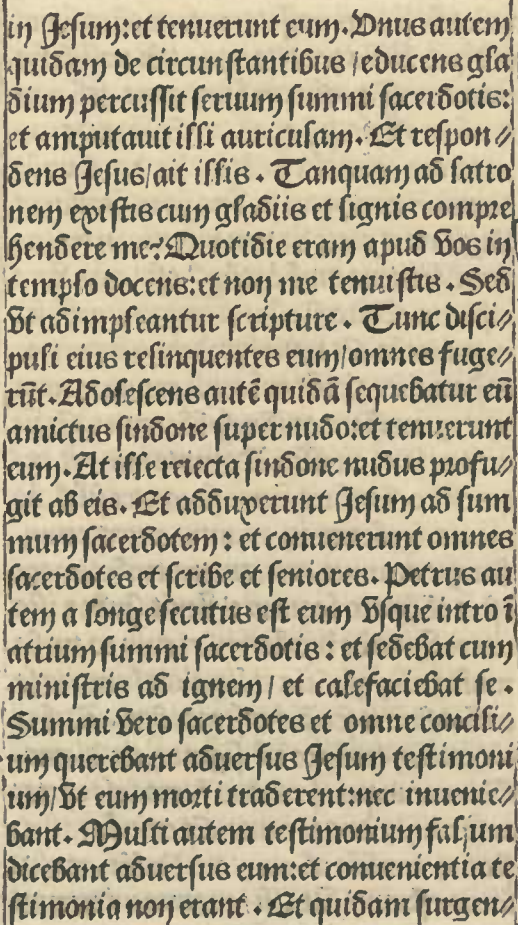 in Jesum:et tenuerunt eum. Vnus autem
quidam de circunstantibus/educens gla
dium percussit seruum summi sacerdotis:
et amputauit illi auriculam. Et respon//
dens Jesus/ait illis. Tanquam ad latro
nem existis cum gladiis et lignis compre
hendere me? Quotidie eram apud vos in
templo docens:et non me tenuistis. Sed
vt adimpleantur scripture. Tunc disci//
puli eius relinquentes eum/omnes fuge//
rūt. Adolescens autē quidā sequebatur eū
amictus sindone super nudo:et tenuerunt
eum. At ille reiecta sindone nudus profu//
git ab eis. Et adduxerunt Jesum ad sum
mum sacerdotem: et conuenerunt omnes
sacerdotes et scribe et seniores. Petrus au
tem a longe secutus est eum vsque intro ī
atrium summi sacerdotis: et sedebat cum
ministris ad ignem/ et calefaciebat se.
Summi vero sacerdotes et omne concili//
um querebant aduersus Jesum testimoni
um/vt eum morti traderent:nec inuenie//
bant. Multi autem testimonium falsum
dicebant aduersus eum:et conuenientia te
stimonia non erant. Et quidam surgen//